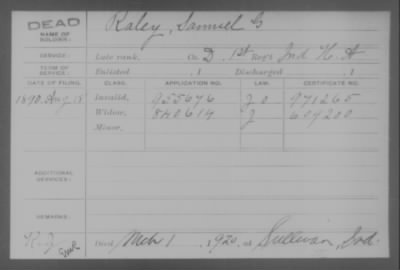 DEAD
NAME OF SOLDIER: Raley, Samuel G
SERVICE: Late rank, Co. D, 1st Reg't Ind H. A
TERM OF SERVICE: Enlisted , 1 Discharged , 1
DATE OF FILING. CLASS. APPLICATION NO. LAW. CERTIFICATE NO.
1890, Aug 18 Invalid, 955676 971265
Widow, 840614 J 609200
Minor,
ADDITIONAL SERVICES:
REMARKS:
Died Mch 1, 1920, at Sullivan, Ind.